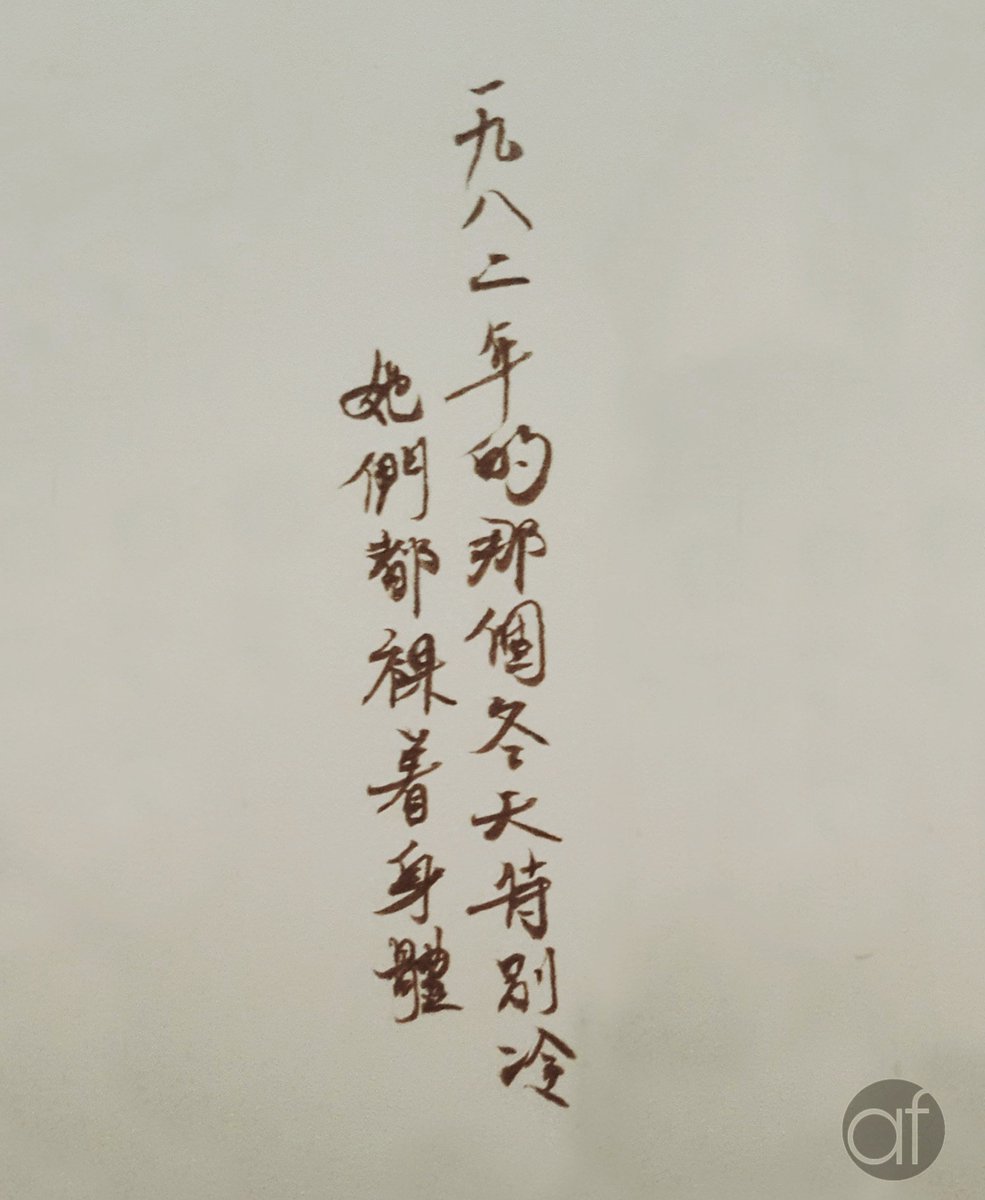 一九八二年的那個冬天特別冷
她們都裸着身體
af